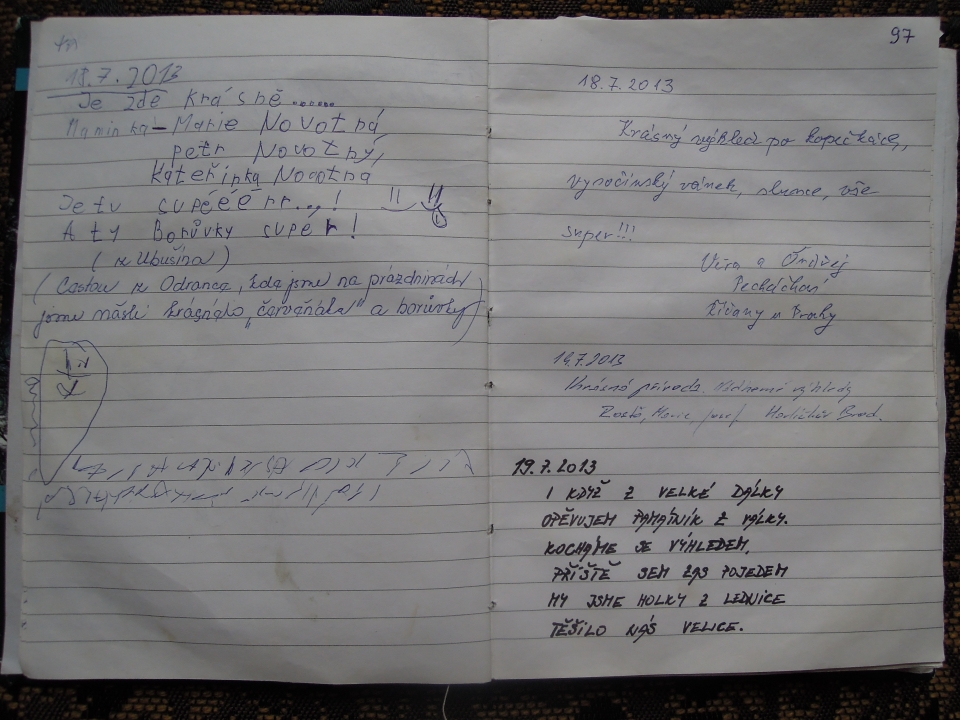 18.7.2013
Je zde krásně.......
Maminka - Marie Novotná
petr Novotný,
Kateřinka Novotná
Je tu supééér...!
A ty Borůvky supér!
(z Ubušína)
(Cestou z Odrance, kde jsme na prázdninách
jsme našli krásného „červeňáka" a borůvky)
97
18.7.2013
Krásný výhled po kopečkách,
vysočinský vánek, slunce, vše
super!!!
Věra a Ondřej
Pecháčkovi
Říčany u Prahy
19.7.2013
Krásná příroda. Nádherné výhledy
Marie, Josef Havlíčkův Brod.
19.7.2013
I KDYŽ Z VELKÉ DÁLKY
OPĚVUJEM PAMÁTNÍK Z VÁLKY.
KOCHÁME SE VÝHLEDEM,
PŘÍŠTĚ SEM ZAS POJEDEM
MY JSME HOLKY Z LEDNICE
TĚŠILO NÁS VELICE.